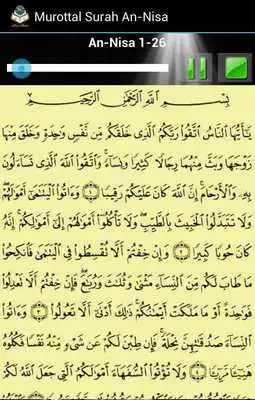 Murottal Surah An-Nisa
An-Nisa 1-26
بِسْمِ اللَّهِ الرَّحْمَٰنِ الرَّحِيمِ
يَٰٓأَيُّهَا النَّاسُ اتَّقُوا رَبَّكُمُ الَّذِى خَلَقَكُم مِّن نَّفْسٍ وَٰحِدَةٍ وَخَلَقَ مِنْهَا
زَوْجَهَا وَبَثَّ مِنْهُمَا رِجَالًا كَثِيرًا وَنِسَآءً ۚ وَاتَّقُوا اللَّهَ الَّذِى تَسَآءَلُونَ
بِهِۦ وَالْأَرْحَامَ ۚ إِنَّ اللَّهَ كَانَ عَلَيْكُمْ رَقِيبًا ١ وَءَاتُوا الْيَتَٰمَىٰٓ أَمْوَٰلَهُمْ ۖ
وَلَا تَتَبَدَّلُوا الْخَبِيثَ بِالطَّيِّبِ ۖ وَلَا تَأْكُلُوٓا أَمْوَٰلَهُمْ إِلَىٰٓ أَمْوَٰلِكُمْ ۚ إِنَّهُۥ
كَانَ حُوبًا كَبِيرًا ٢ وَإِنْ خِفْتُمْ أَلَّا تُقْسِطُوا فِى الْيَتَٰمَىٰ فَانكِحُوا
مَا طَابَ لَكُم مِّنَ النِّسَآءِ مَثْنَىٰ وَثُلَٰثَ وَرُبَٰعَ ۖ فَإِنْ خِفْتُمْ أَلَّا تَعْدِلُوا
فَوَٰحِدَةً أَوْ مَا مَلَكَتْ أَيْمَٰنُكُمْ ۚ ذَٰلِكَ أَدْنَىٰٓ أَلَّا تَعُولُوا ٣ وَءَاتُوا
النِّسَآءَ صَدُقَٰتِهِنَّ نِحْلَةً ۚ فَإِن طِبْنَ لَكُمْ عَن شَىْءٍ مِّنْهُ نَفْسًا فَكُلُوهُ
هَنِيٓـًٔا مَّرِيٓـًٔا ٤ وَلَا تُؤْتُوا السُّفَهَآءَ أَمْوَٰلَكُمُ الَّتِى جَعَلَ اللَّهُ لَكُمْ